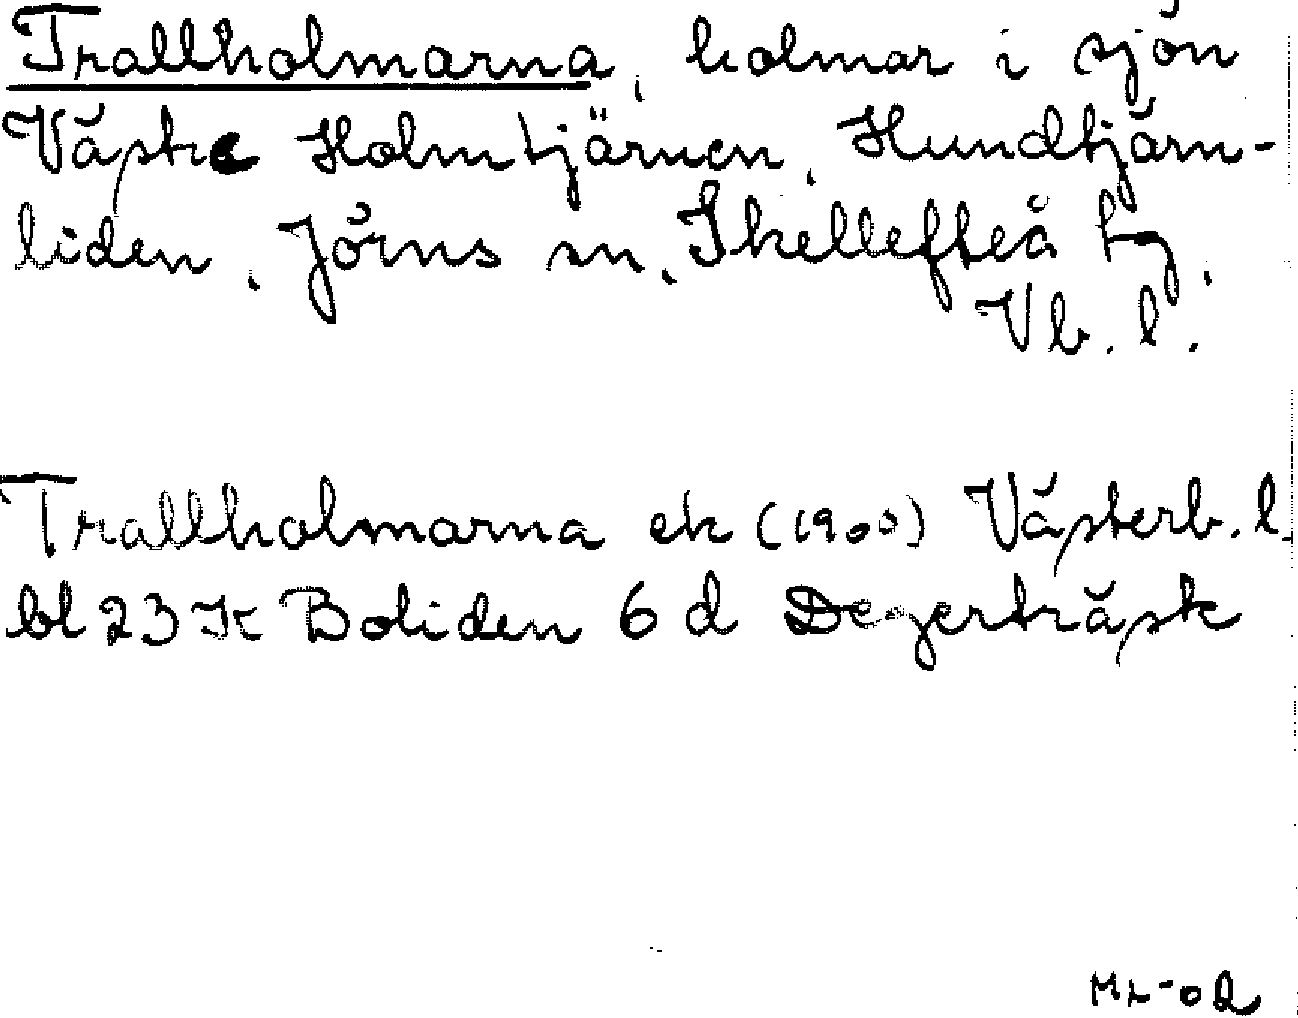 Trallholmarna, holmar i sjön
Västre Holmtjärnen, Hundtjärn-
liden, Jörns sn, Skellefteå tg,
Vb. l.
Trallholmarna ek (1900) Västerb. l.
bl 23 K Boliden 6 d Degerträsk